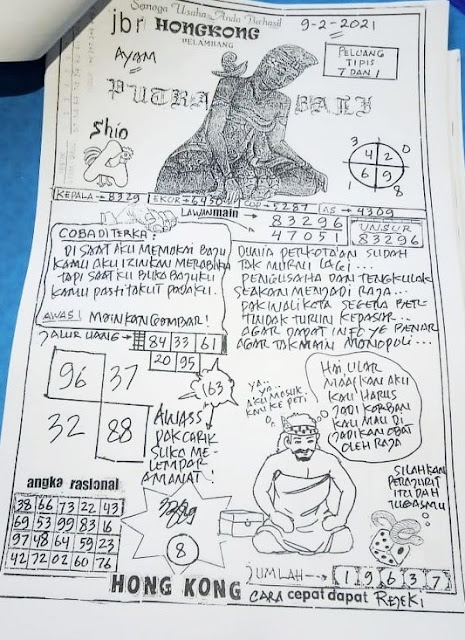 Semoga Usaha Anda Berhasil
jbr HONGKONG 9-2-2021
PELAMBANG
AYAM
PELUANG
TIPIS
7 DAN 1
PUTRA BALI
Shio
3 0
4 2
6 9
1 8
KEPALA → 8329 EKOR → 6430 5287 AS → 4309
LAWAN main 83296
47051
UNSUR
83296
COBA DITERKA :
DI SAAT AKU MEMAKAI BAJU
KAMU AKU IZINKAN MERABIKU
TAPI SAAT KU BUKA BAJUKU
KAMU PASTI TAKUT PADAKU.
AWAS! MAINKAN GOMBAR!
DUNIA PERKOTAAN SUDAH
TAK MURNI LAGI...
PENGUSAHA DAN TENGKULAK
SEAKAN MENJADI RAJA...
PAK WALIKOTA SEGERA BER-
TINDAK TURUN KEPASAR...
AGAR DAPAT INFO YG BENAR
AGAR TAK MAIN MONOPOLI...
JALUR UANG → 84 33 61
20 95
96 37
32 88
63
AWASS
PAK CARIK
SUKA ME-
LEMPAR
AMANAT!
YA..
YA..
AKU MASUK
KAN KE PETI
HAI ULAR
MAAFKAN AKU
KAU HARUS
JADI KORBAN
KAU MAU DI
JADIKAN OBAT
OLEH RAJA
SILAHKAN
PRAJURIT
ITU DAH
TUGASMU
angka rasional
38 66 73 22 43
69 53 99 83 16
97 48 64 59 23
42 72 02 60 76
8
JUMLAH → 1 9 6 3 7
HONG KONG CARA cepat dapat REJEKI